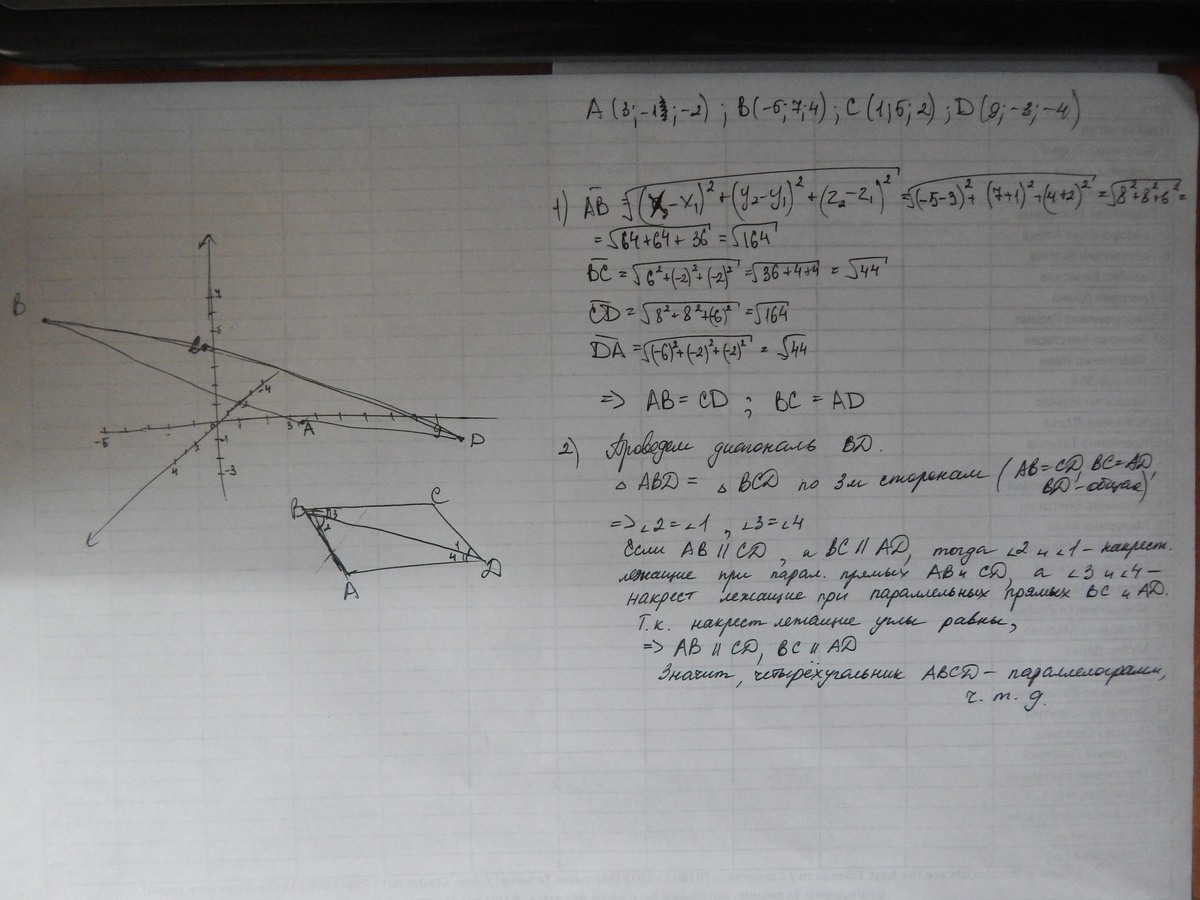 A (3; -1; -2) ; B(-5; 7; 4) ; C (1; 5; 2) ; D (9; -3; -4)
1) AB = √(x₂-x₁)² + (y₂-y₁)² + (z₂-z₁)² = √(-5-3)² + (7+1)² + (4+2)² = √8²+8²+6² =
= √64+64+36 = √164
BC = √6²+(-2)²+(-2)² = √36+4+4 = √44
CD = √8²+8²+(6)² = √164
DA = √(-6)²+(-2)²+(-2)² = √44
=> AB = CD ; BC = AD
2) Проведем диагональ BD.
△ ABD = △ BCD по 3м сторонам (AB=CD, BC=AD,
BD - общая)
=> ∠2=∠1 , ∠3=∠4
Если AB || CD , а BC || AD, тогда ∠2 и ∠1 - накрест.
лежащие при парал. прямых AB и CD, а ∠3 и ∠4 -
накрест лежащие при параллельных прямых BC и AD.
Т.к. накрест лежащие углы равны,
=> AB || CD, BC || AD
Значит, четырёхугольник ABCD - параллелограмм,
ч. т. д.
B
5
-4
-5
3
A
9
D
-1
4
-3
B
3
2
C
1
4
D
A